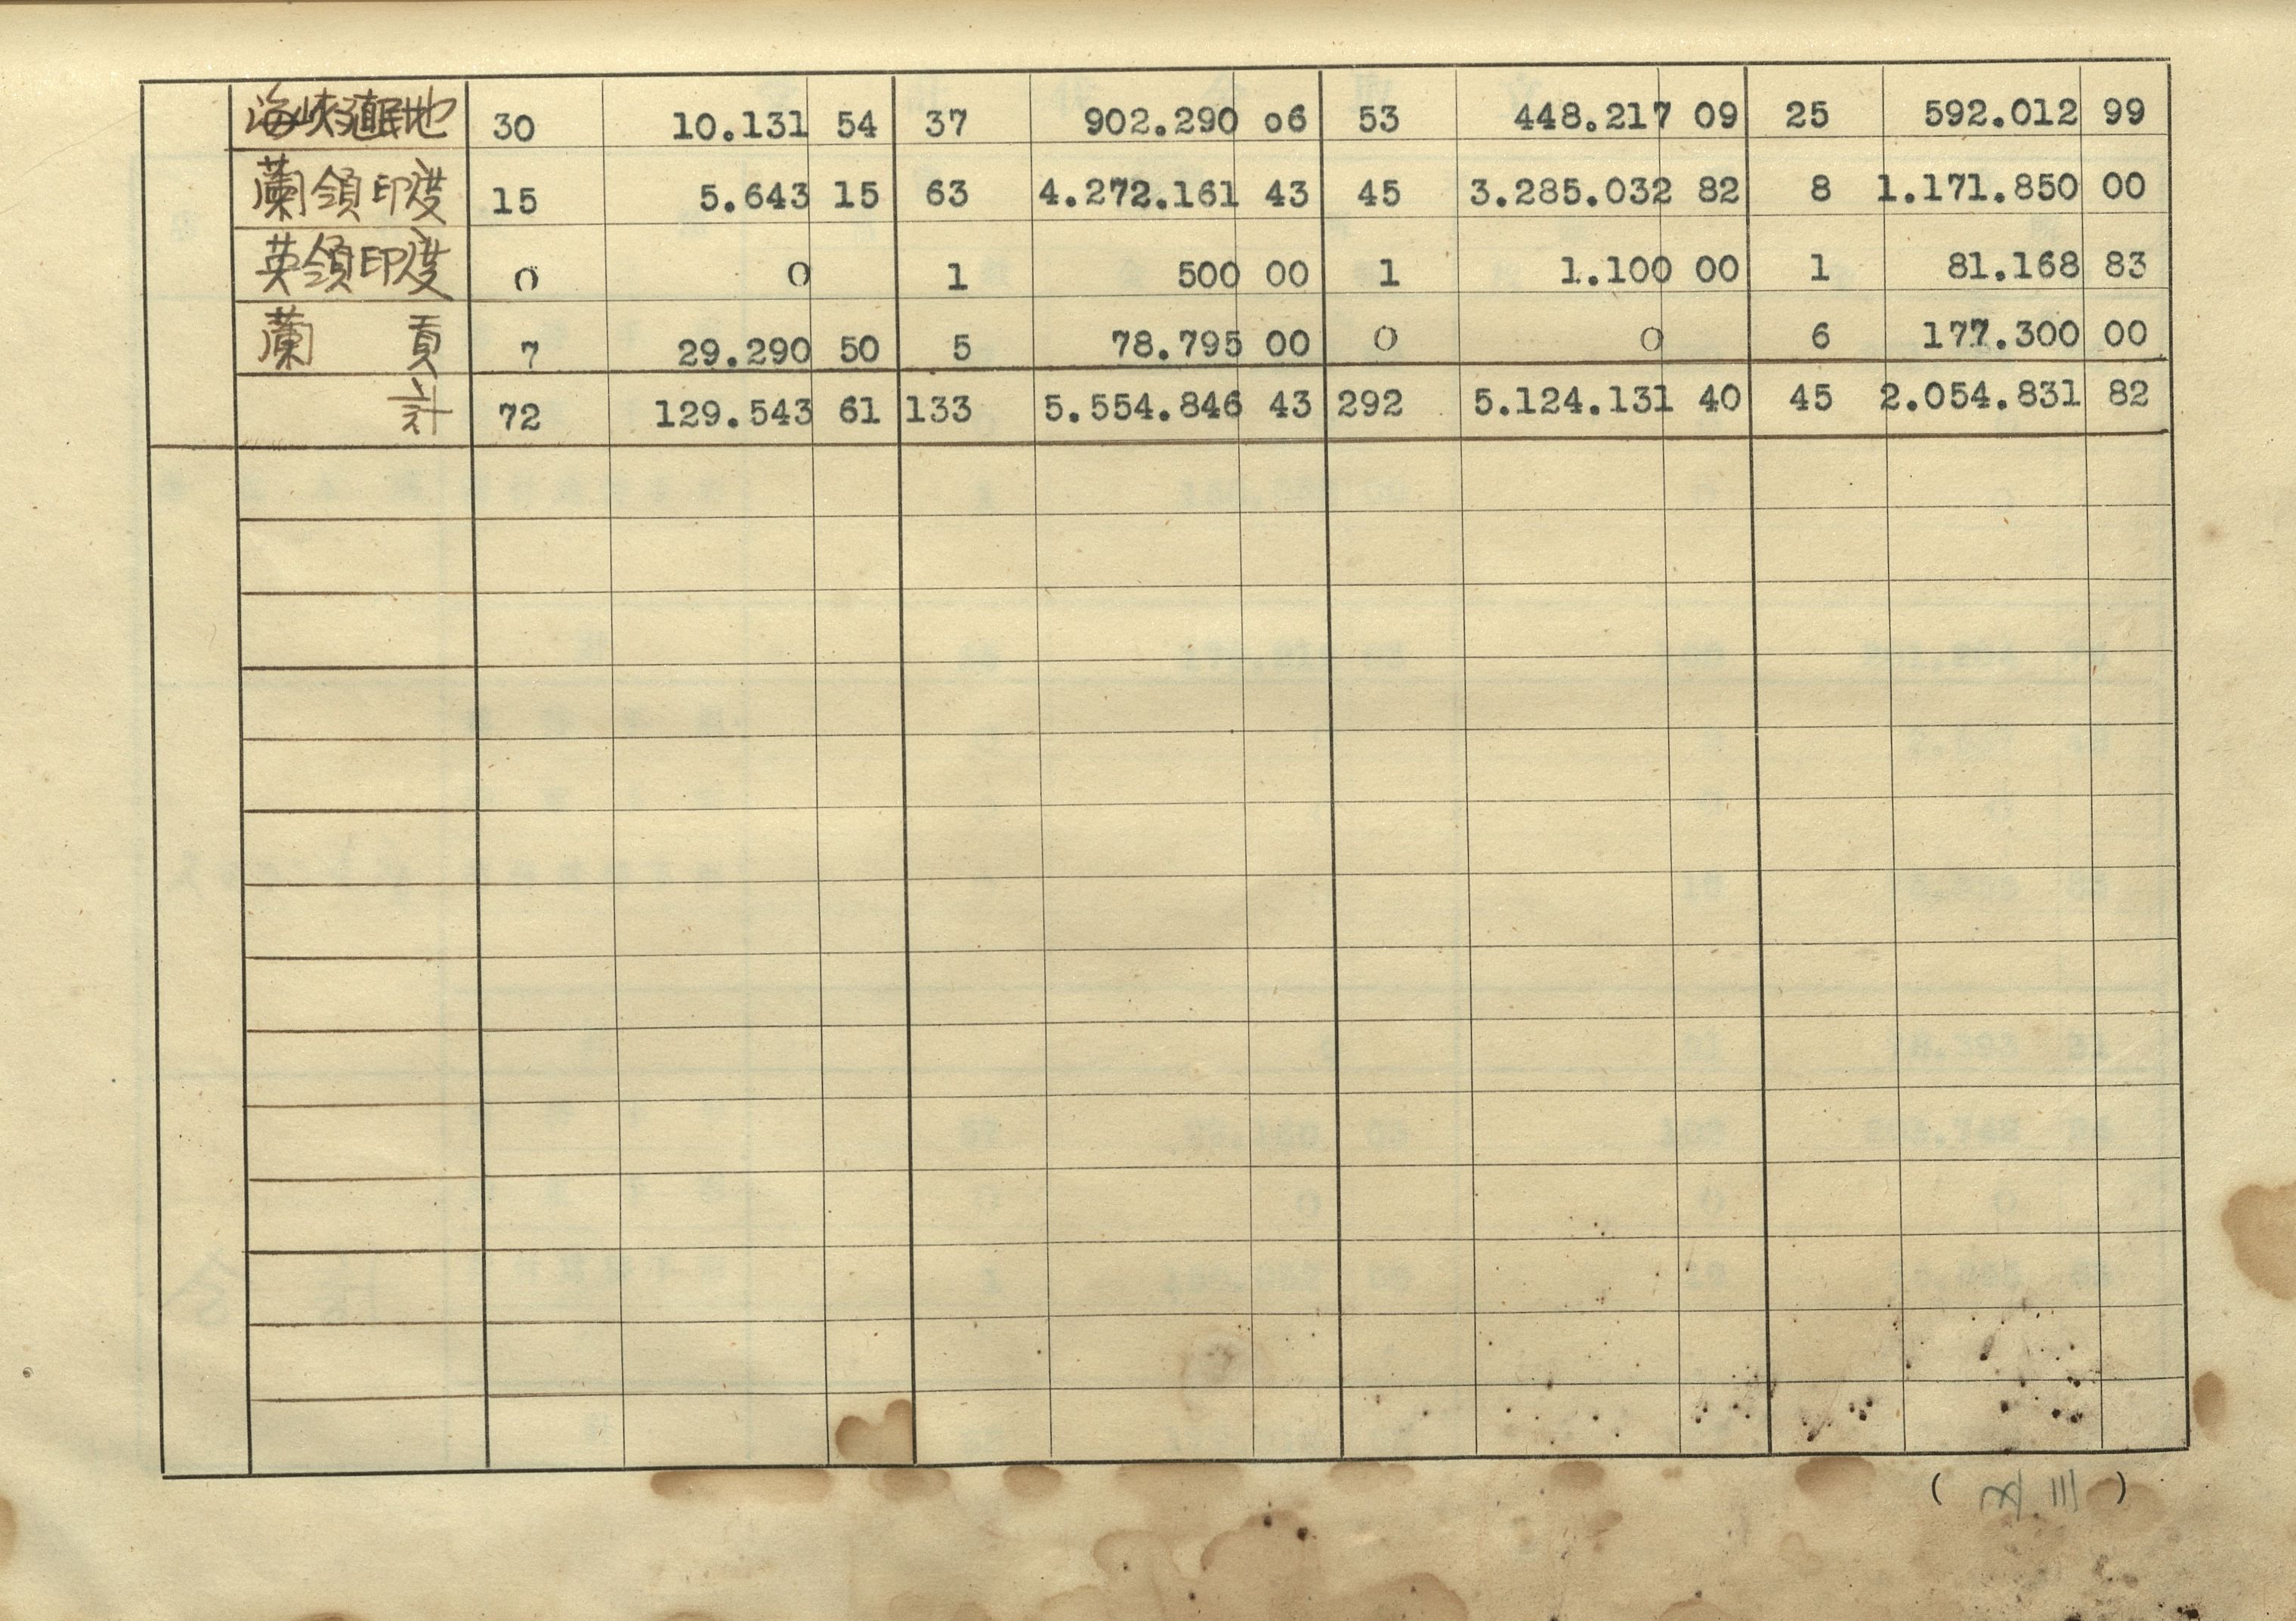 海峽殖民地 30 10.131 54 37 902.290 o6 53 448.217 09 25 592.012 99
蘭領印度 15 5.643 15 63 4.272.161 43 45 3.285.032 82 8 1.171.850 00
英領印度 0 0 1 500 00 1 1.100 00 1 81.168 83
蘭貢 7 29.290 50 5 78.795 00 0 0 6 177.300 00
計 72 129.543 61 133 5.554.846 43 292 5.124.131 40 45 2.054.831 82